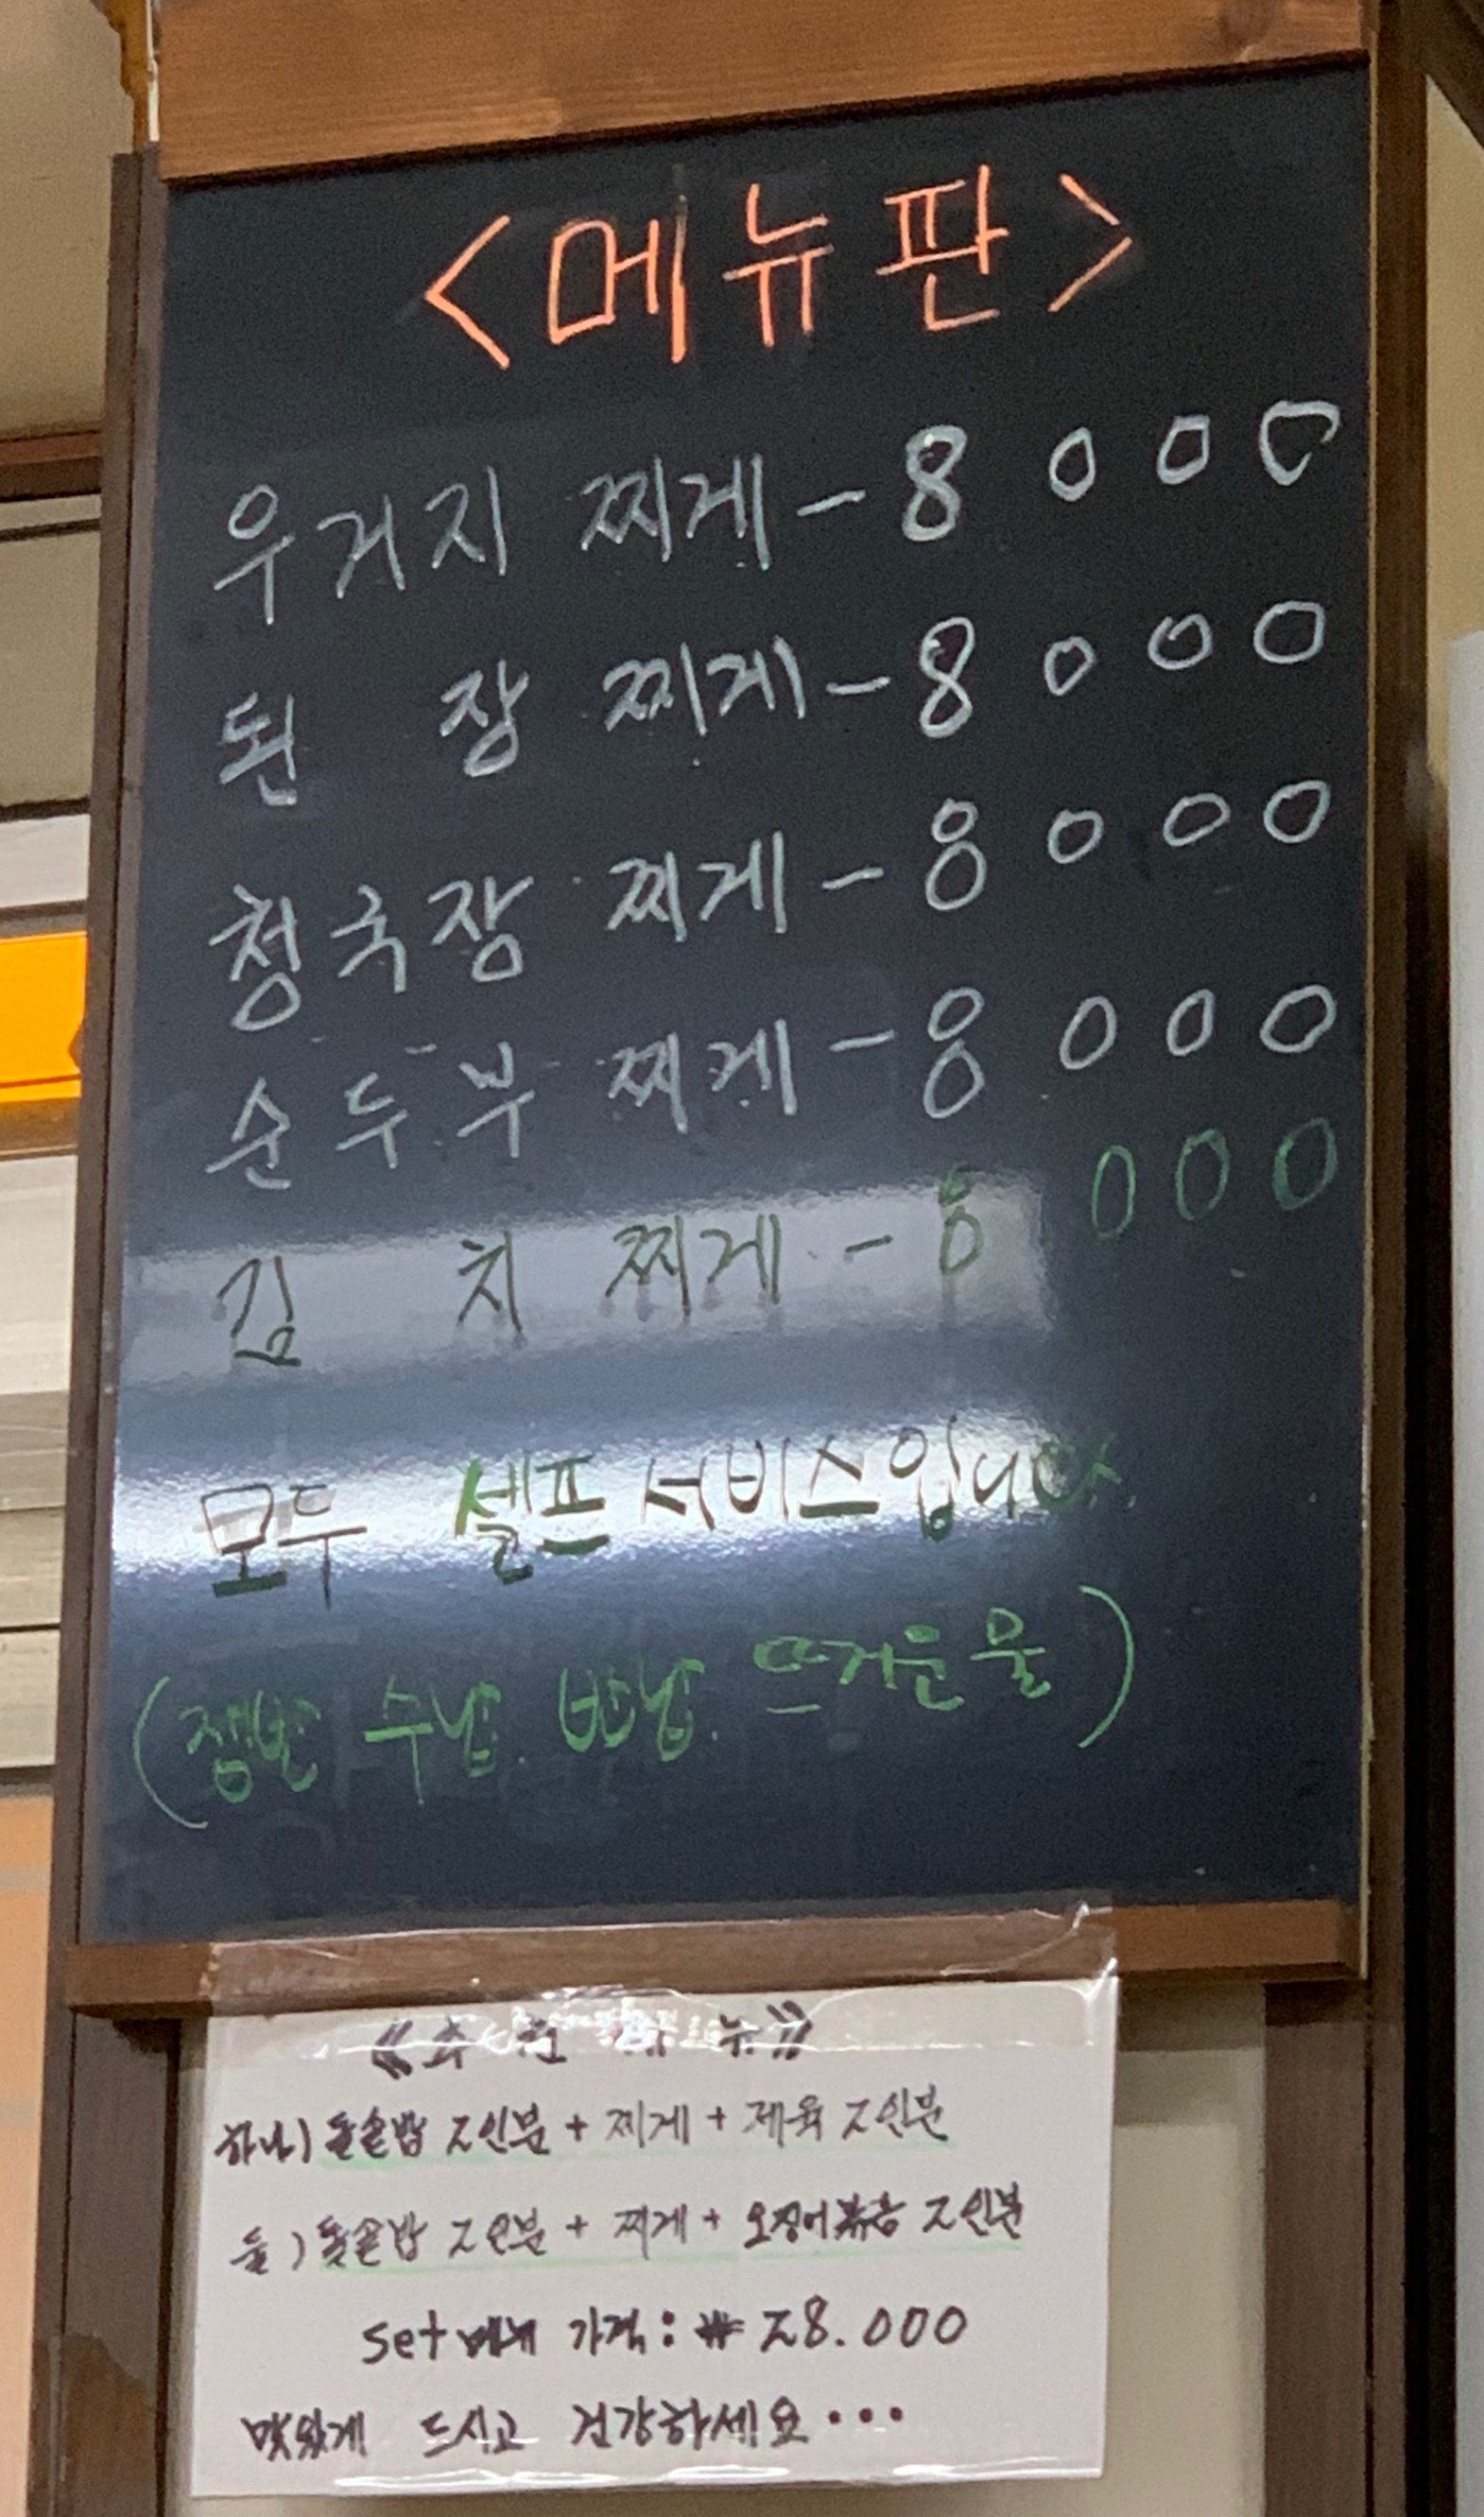 <메뉴판>
우거지 찌게 - 8000
된 장 찌게 - 8000
청국장 찌게 - 8000
순두부 찌게 - 8000
김 치 찌게 - 8000
모두 셀프 서비스입니다.
(쟁반 수납 반납 뜨거운 물)
《추천메뉴》
하나) 돌솥밥 2인분 + 찌게 + 제육 2인분
둘) 돌솥밥 2인분 + 찌게 + 오징어볶음 2인분
set 메뉴 가격: ₩ 28.000
맛있게 드시고 건강하세요...